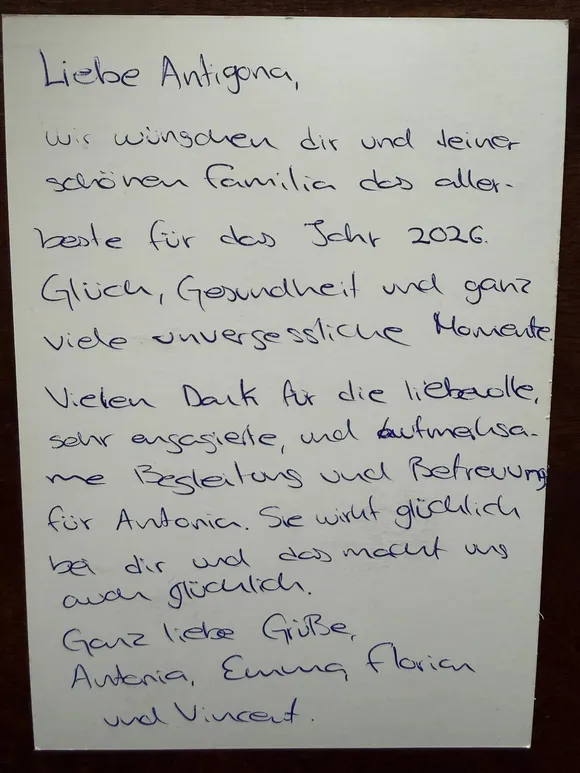 Liebe Antigona,
wir wünschen dir und deiner
schönen Familia das aller-
beste für das Jahr 2026.
Glück, Gesundheit und ganz
viele unvergessliche Momente.
Vielen Dank für die liebevolle,
sehr engagierte, und aufmerksa-
me Begleitung und Betreuung
für Antonia. Sie wirkt glücklich
bei dir und das macht uns
auch glücklich.
Ganz liebe Grüße,
Antonia, Emma, Florian
und Vincent.